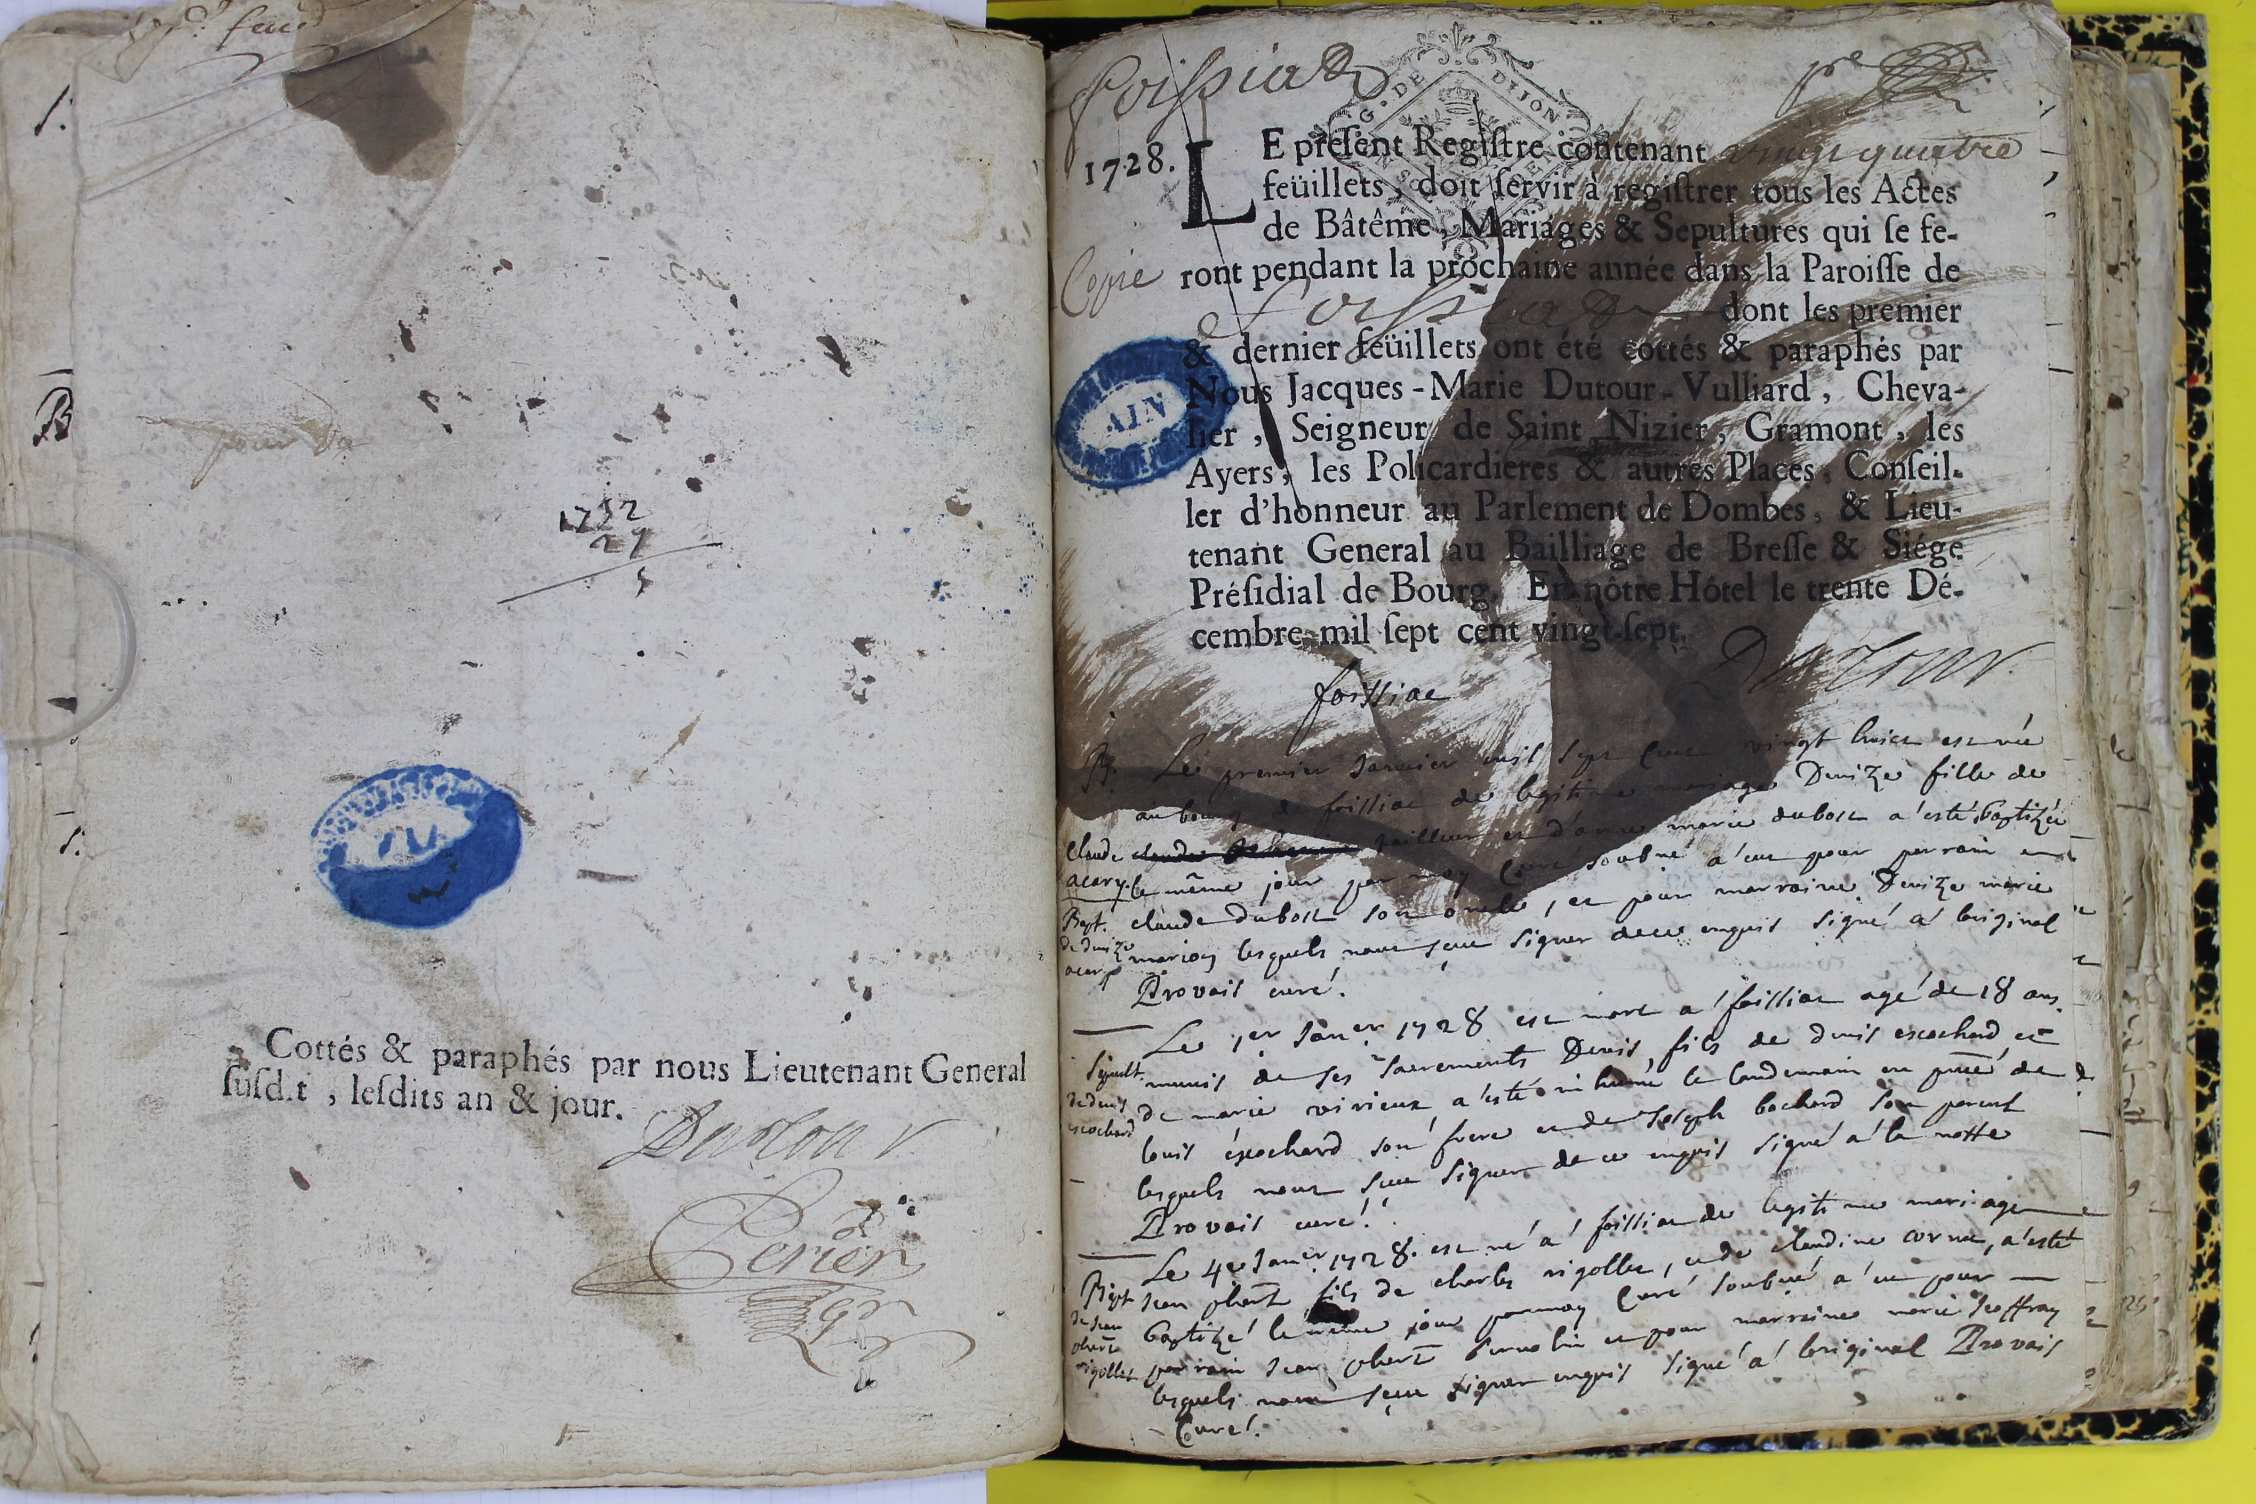 pour
1752
24
5
AIN
Cottés & paraphés par nous Lieutenant General
ſuſd.t , leſdits an & jour.
Dutour
Perier
Foissia
pre
G. DE DIJON
1728.
LE preſent Regiſtre contenant vingt quatre
feüillets, doit ſervir à regiſtrer tous les Actes
de Bâtême, Mariages & Sepultures qui ſe fe-
Copie
ront pendant la prochaine année dans la Paroiſſe de
Foissia dont les premier
& dernier feüillets ont été cottés & paraphés par
AIN
Nous Jacques-Marie Dutour-Vulliard, Cheva-
lier, Seigneur de Saint Nizier, Gramont, les
Ayers, les Policardieres & autres Places, Conſeil-
ler d'honneur au Parlement de Dombes, & Lieu-
tenant General au Bailliage de Breſſe & Siége
Préſidial de Bourg. En nôtre Hôtel le trente Dé-
cembre mil ſept cent vingt-ſept.
Dutour
foissiac
B. Le premier Janvier mil sept cent vingt huict est née
au bourg de foissiac de legitime mariage Denize fille de
claude acary tailleur et d'anne marie dubost a esté baptizée
le même jour par moy Curé soubné a eut pour parrain
Bapt. de denize acary
claude dubost son oncle, et pour marraine Denize marie
marion lesquels nont sceu signer de ce enquis signé a l'original
Provais curé.
Le 1er Janer 1728 est mort a foissiac agé de 18 ans
Sepult. de denis escochard
munis de ses sacrements Denis, fils de denis escochard et
de marie virieux a esté inhumé le landemain en pñce de
louis escochard son frere et de Joseph bochard son parent
lesquels nont sceu signer de ce enquis signé a la notte
Provais curé.
Le 4e Janer 1728. est né a foissiac de legitime mariage
Bapt de Jean phert rigollet
Jean phert fils de charles rigollet, et de claudine cornu, a esté
baptizé le meme jour par moy Curé soubné a eu pour
parrain Jean phert et pour marraine marie Jeoffray
lesquels nont sceu signer enquis signé a l'original Provais
Curé.